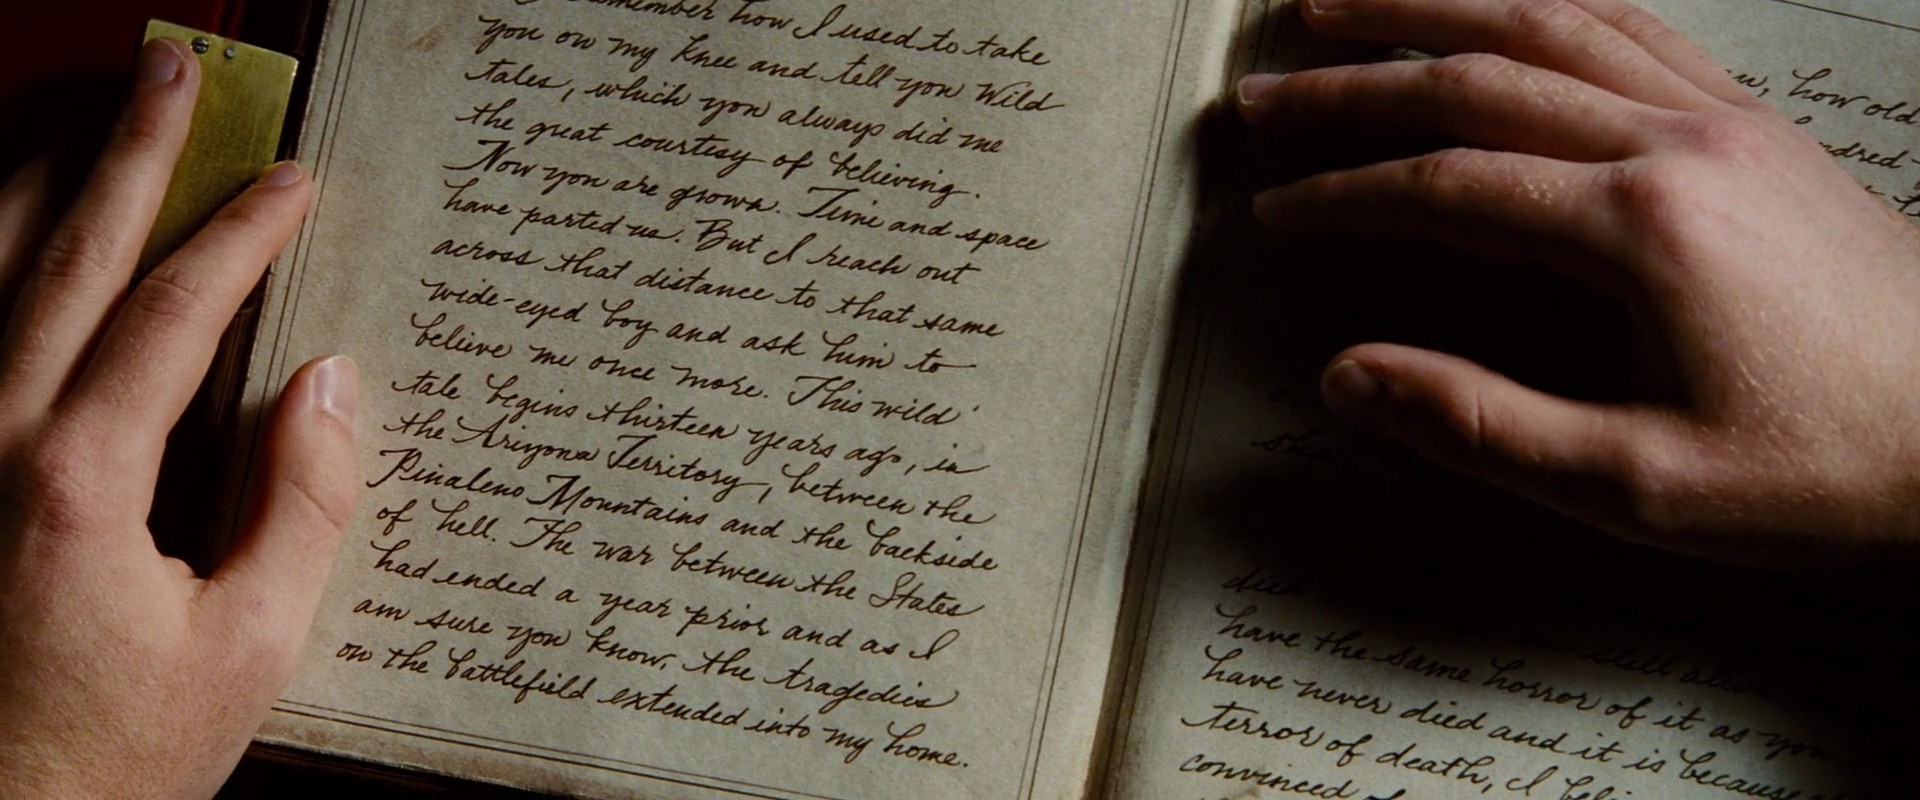 remember how I used to take
you on my knee and tell you Wild
tales, which you always did me
the great courtesy of believing.
Now you are grown. Time and space
have parted us. But I reach out
across that distance to that same
wide-eyed boy and ask him to
believe me once more. This wild
tale begins thirteen years ago, in
the Arizona Territory, between the
Pinaleno Mountains and the backside
of hell. The war between the States
had ended a year prior and as I
am sure you know, the tragedies
on the battlefield extended into my home.
how old
died
still
have the same horror of it as you
have never died and it is because
terror of death, I
convinced